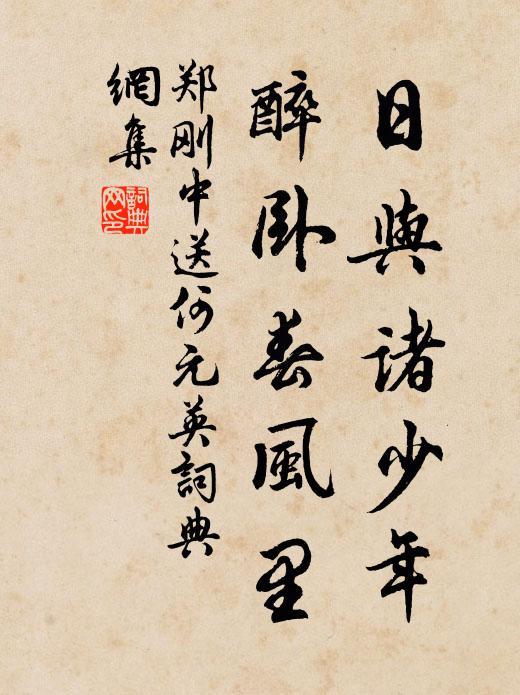 日與諸少年
醉卧春風里
郑刚中送何元英詞典
網集
詞典
网印